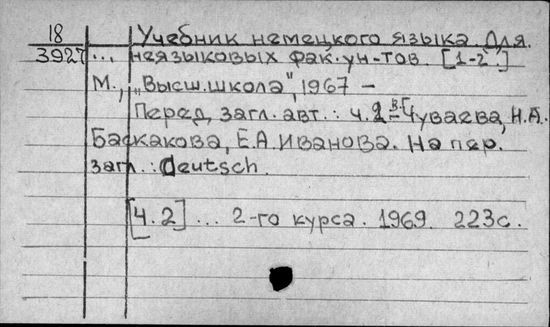 18
3927
Учебник немецкого языка. Для
... неязыковых фак. ун-тов. [1-2.]
М., „Высш. школа", 1967 –
Перед загл. авт.: ч. 2 – В. Г. Чуваева, Н.А.
Баскакова, Е.А. Иванова. На пер.
загл.: Deutsch.
[Ч. 2] ... 2-го курса. 1969. 223с.